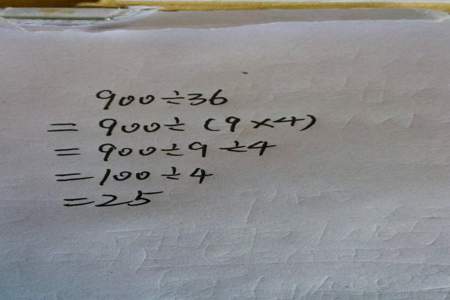 900÷36
= 900÷(9×4)
= 900÷9÷4
= 100÷4
= 25